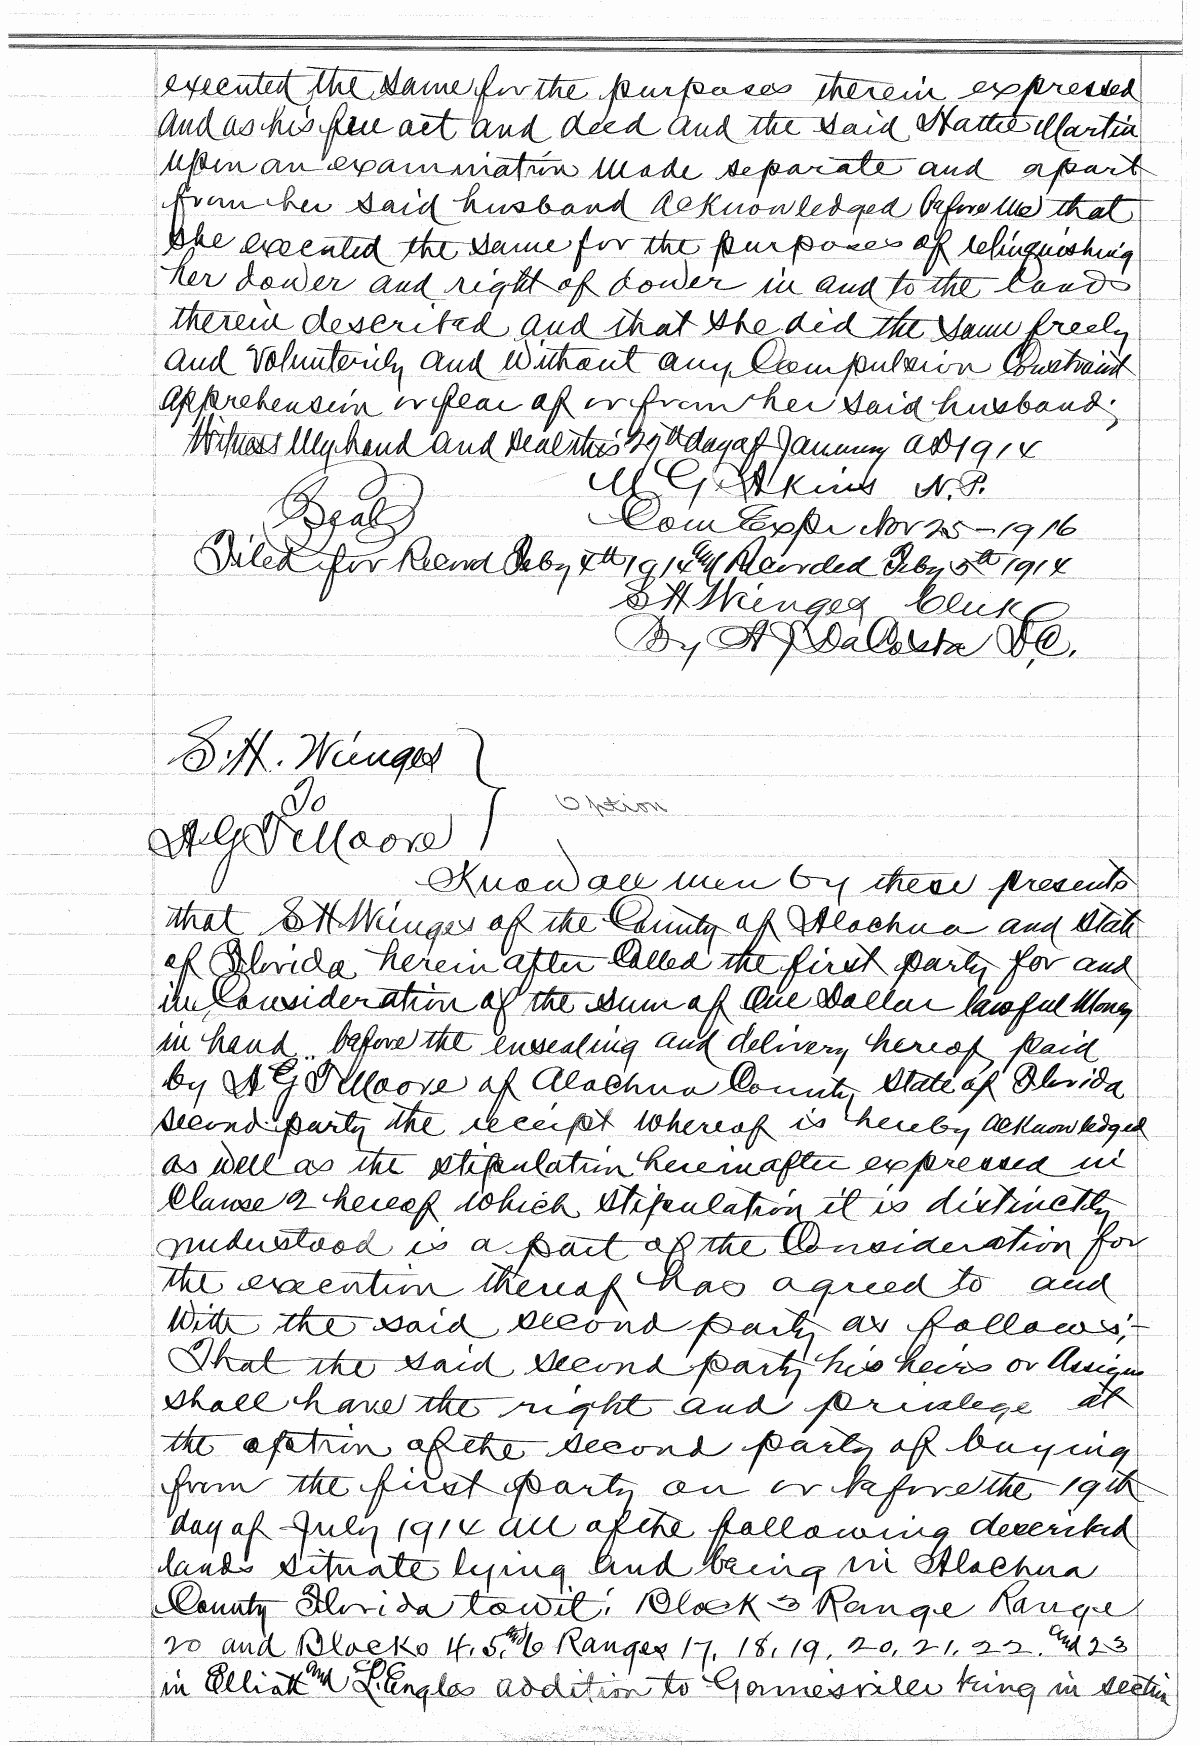 executed the same for the purposes therein expressed
and as his free act and deed and the said Hattie Martin
upon an examination made separate and apart
from her said husband acknowledged before me that
she executed the same for the purposes of relinquishing
her dower and right of dower in and to the lands
therein described and that she did the same freely
and volunterily and without any compulsion constraint
apprehension or fear of or from her said husband;
Witness my hand and seal this 29th day of January AD 1914
M G Akins N.P.
Seal
Com Expr Nov 25-1916
Filed for Record Feby 4th 1914 and Recorded Feby 5th 1914
S H Wienges Clerk
By A J DaCosta D.C.
S.H. Wienges
To
A G T Moore
Option
Know all men by these presents
that S H Wienges of the County of Alachua and State
of Florida herein after called the first party for and
in consideration of the sum of One Dollar lawful money
in hand before the ensealing and delivery hereof paid
by A G T Moore of Alachua County State of Florida
second party the receipt whereof is hereby acknowledged
as well as the stipulation hereinafter expressed in
Clause 2 hereof which stipulation it is distinctly
understood is a part of the Consideration for
the execution thereof has agreed to and
with the said second party as follows;-
That the said second party his heirs or assigns
shall have the right and privilege at
the option of the second party of buying
from the first party on or before the 19th
day of July 1914 all of the following described
lands situate lying and being in Alachua
County Florida towit: Block 3 Range Range
20 and Blocks 4, 5, and 6 Ranges 17, 18, 19, 20, 21, 22, and 23
in Elliott and L'Engles addition to Gainesville lying in section